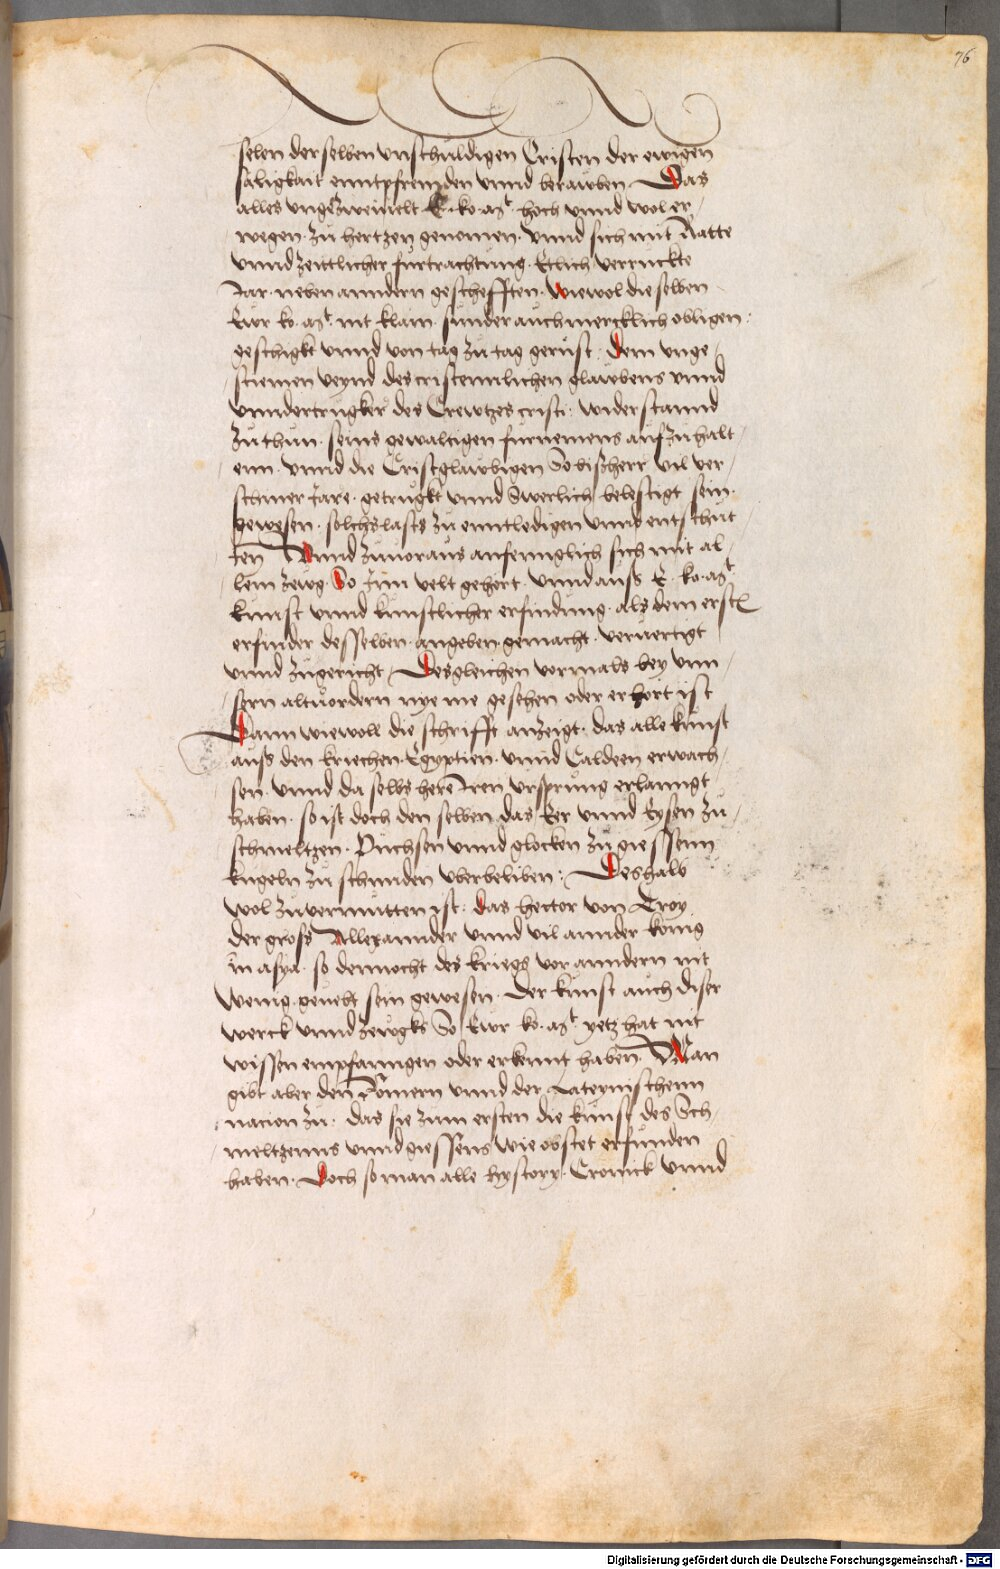 76
selen der selben vnschuldigen Cristen der ewigen
säligkait enntpfremden vnnd berawben Das
alles vngezweiuelt E. ko. mt. hoch vnnd wol er-
wegen. zu hertzen genomen. vnnd sich mit Ratte
vnnd zeittlicher furtrachtung. Etlich verruckte
Jar. neben anndern geschefften. Wiewol die selben
Eur ko. mt. nit klain. sunder auch mercklich obligen.
geschigkt vnnd von tag zu tag gerust. Dem vnge-
stiemen veynd des cristennlichen glawbens vnnd
vnndertrugker des Crewtzes cristi. widerstannd
zuthun. seins gewaltigen furnemens aufzuhalt-
enn. vnnd die Cristglawbigen So bißherr vil ver-
schiner Jare. getrugkt vnnd swerlich belestigt sein
gewesen. solchs lasts zu enntledigen vnnd entschüt-
ten Vnnd zuuoraus anfenngklich sich mit al-
lem zewg. So Inn velt gehört. vnnd auss E. ko. mt.
kunst vnnd kunstlicher erfindung. als dem erstn
erfinder desselben. angeben gemacht. veruertigt
vnnd zugericht. Desgleichen vormals bey vnn-
sern altuordern nye me gesehen oder erhört ist
Dann wiewoll die schrifft anzeigt. das alle kunst
auss den kriechen. Egyptien. vnnd Caldeen erwach-
sen. vnnd da selbs here Iren vrsprung erlanngt
haben. so ist doch den selben das Eer vnnd Eysen zu-
schmeltzen. Puchsen vnnd glocken zu giessenn
kugeln zu schmiden vberbeliben. Deshalb
wol zuuermutten ist. das hector von Troy
der gross Allexannder vnnd vil annder konig
in asya. so dennocht des kriegs vor anndern nit
wenig. geuebt sein gewesen. Der kunst auch diser
werck vnnd zewgks So Eur ko. mt. yetz hat nit
wissen empfanngen oder erkennt haben. Man
gibt aber den Römern vnnd der Lateinischenn
nacion zu. das sie zum ersten die kunst des Sch-
meltzenns vnnd giessens wie obstet erfunden
haben. Doch so man alle hystory. Cronick vnnd
Digitalisierung gefördert durch die Deutsche Forschungsgemeinschaft - DFG